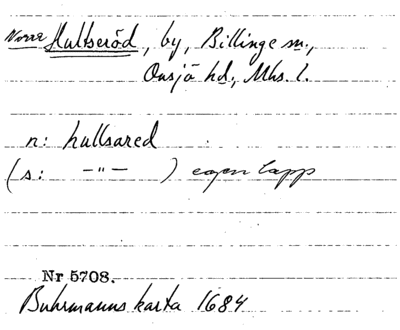 Norra Hultseröd, by, Billinge sn.,
Onsjö hd., Mhs. l.
n: hullsared
(s: -"- ) egen lapp
Nr 5708.
Buhrmanns karta 1684